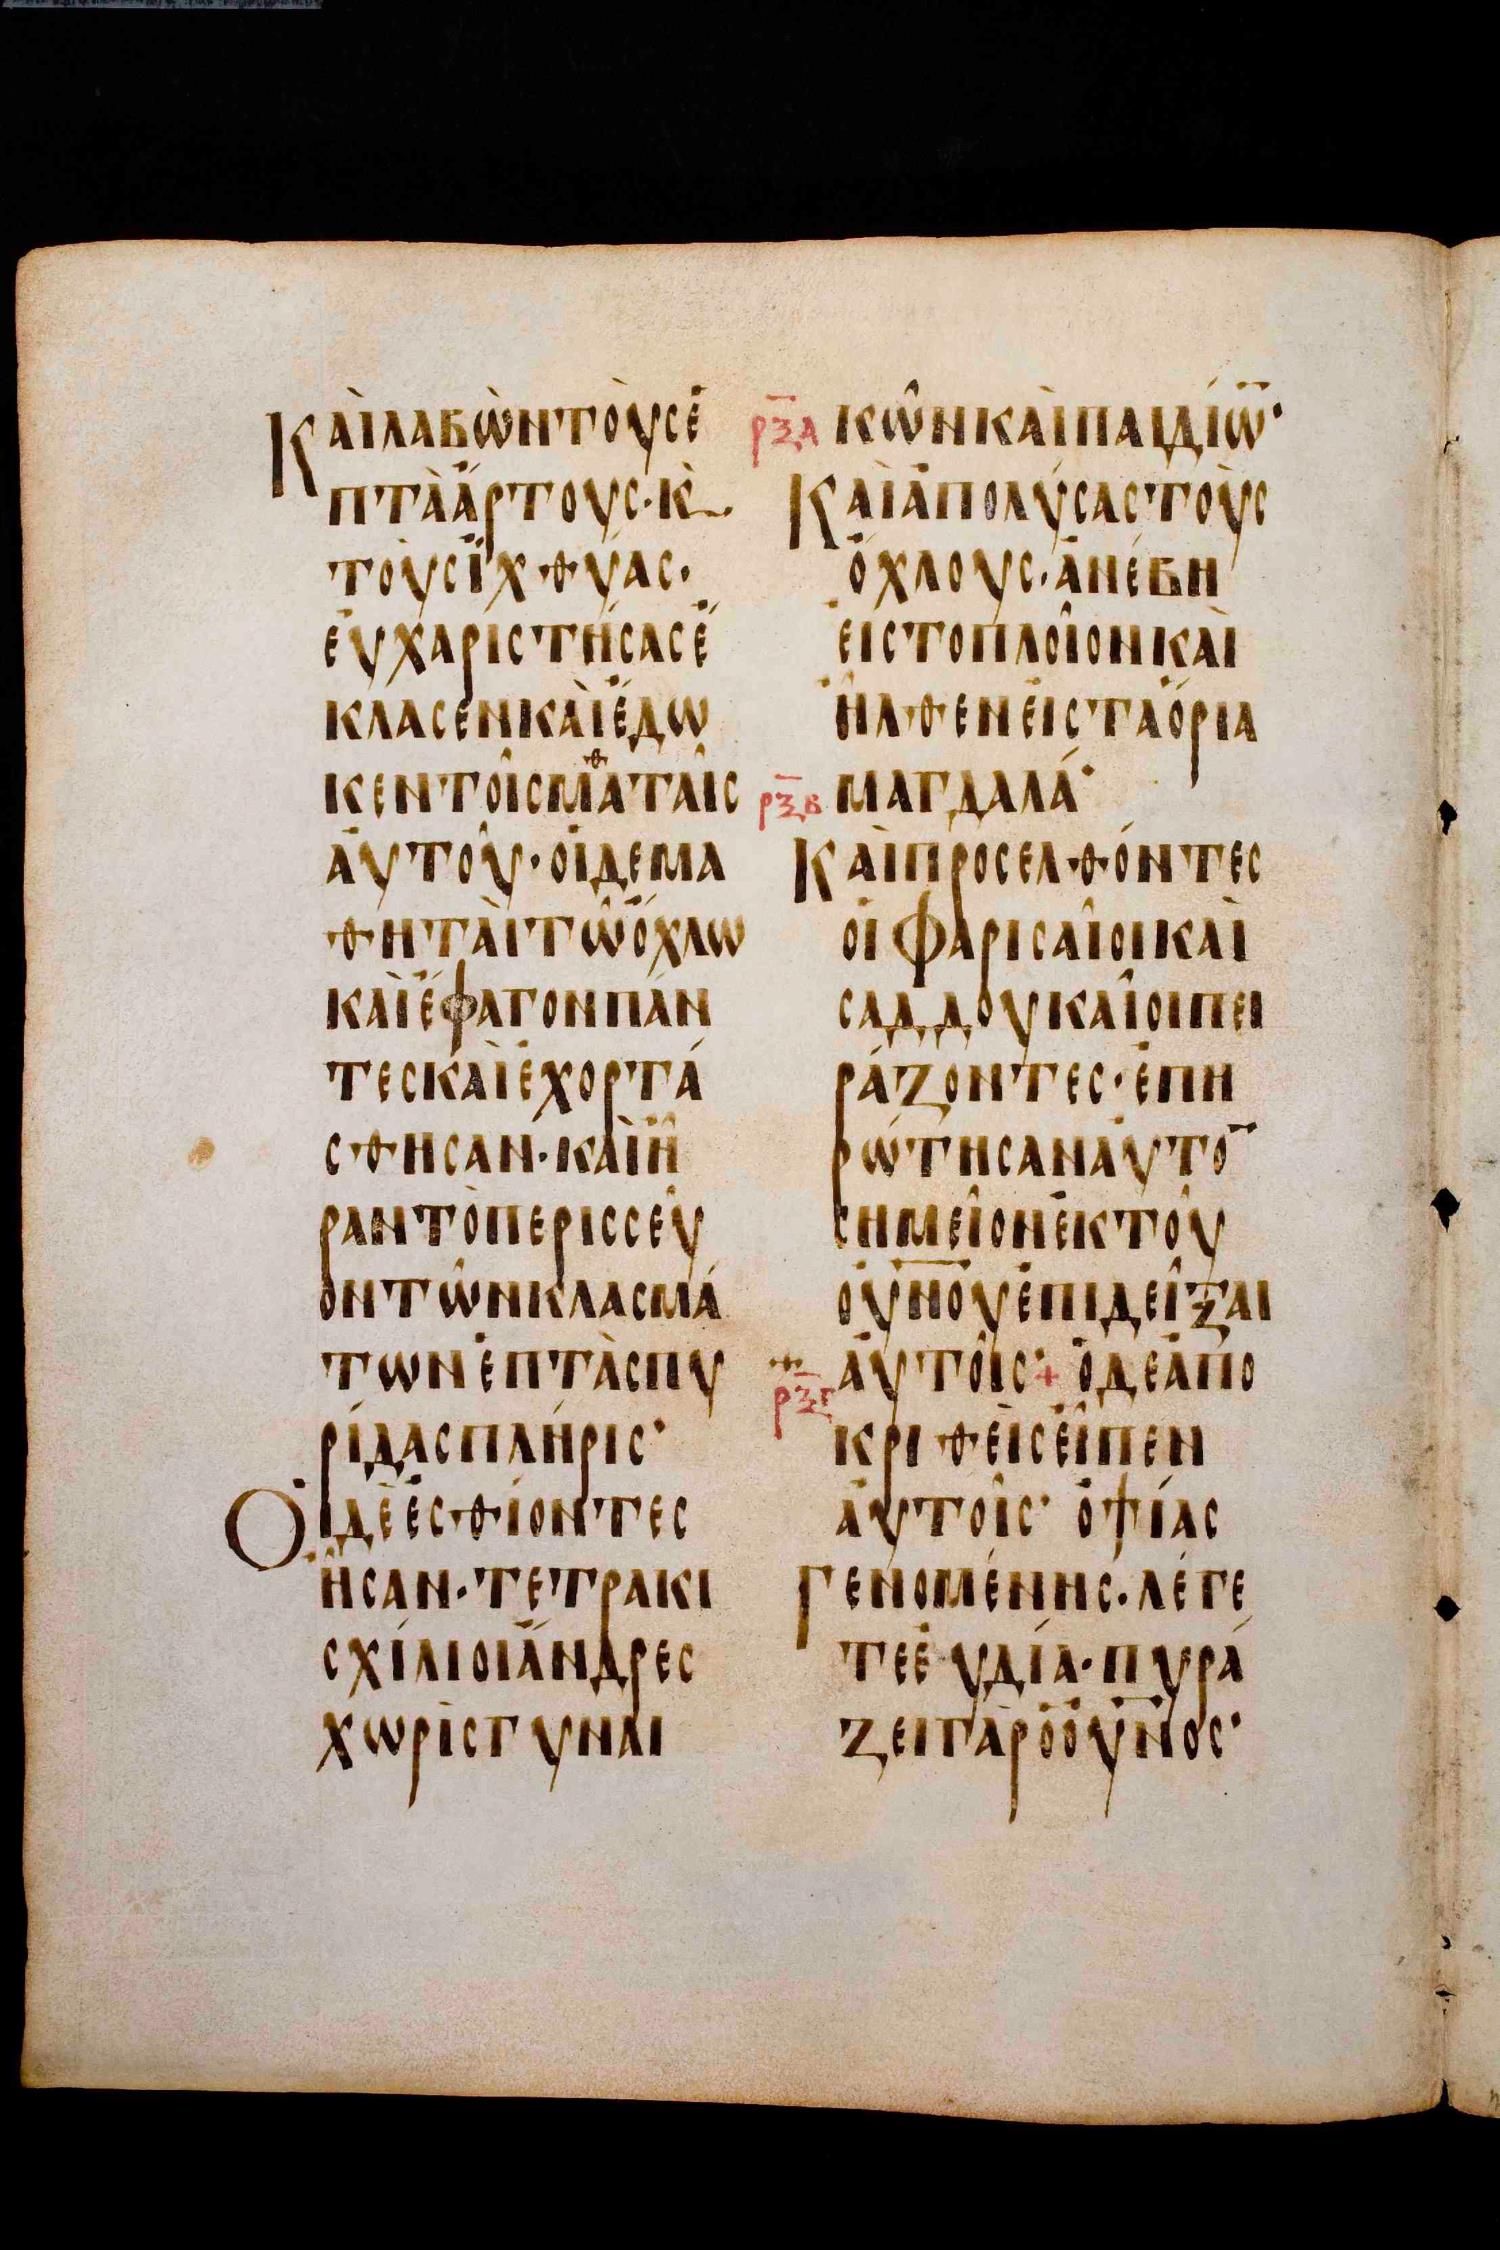 Καὶ λαβὼν τοὺς ἑ
πτὰ ἄρτους· κ̀
τοὺς ἰχθύας·
εὐχαριστήσας ἔ
κλασεν καὶ ἔδω
κεν τοῖς μαθταῖς
αὐτοῦ· οἱ δε μα
θηταὶ τῶ ὄχλω
καὶ ἔφαγον πάν
τες καὶ ἐχορτά
σθησαν· καὶ ἦ
ραν τὸ περισσεῦ
ον τῶν κλασμά
των ἑπτὰ σπυ
ρίδας πλήρις·
Οἱ δὲ ἐσθίοντες
ἦσαν· τετρακι
σχίλιοι ἄνδρες
χωρὶς γυναι
ρξα
κῶν καὶ παιδίω̅·
Καὶ ἀπολύσας τοὺς
ὄχλους· ἀνέβη
εἰς το πλοῖον καὶ
ἦλθεν εἰς τα ὅρια
ρξβ
μαγδαλά·
Καὶ προσελθόντες
οἱ Φαρισαῖοι καὶ
σαδδουκαῖοι πει
ράζοντες· ἐπη
ρώτησαν αὐτο̅
σημεῖον ἐκ τοῦ
ου̅νου ἐπιδεῖξαι
ρξγ
αὐτοῖς· + ὁ δε ἀπο
κριθεὶς εἶπεν
αὐτοῖς· ὀψίας
Γενομένης· λέγε
τε εὐδία· πυρά
ζει γὰρ ὁ οὐ̅νος·